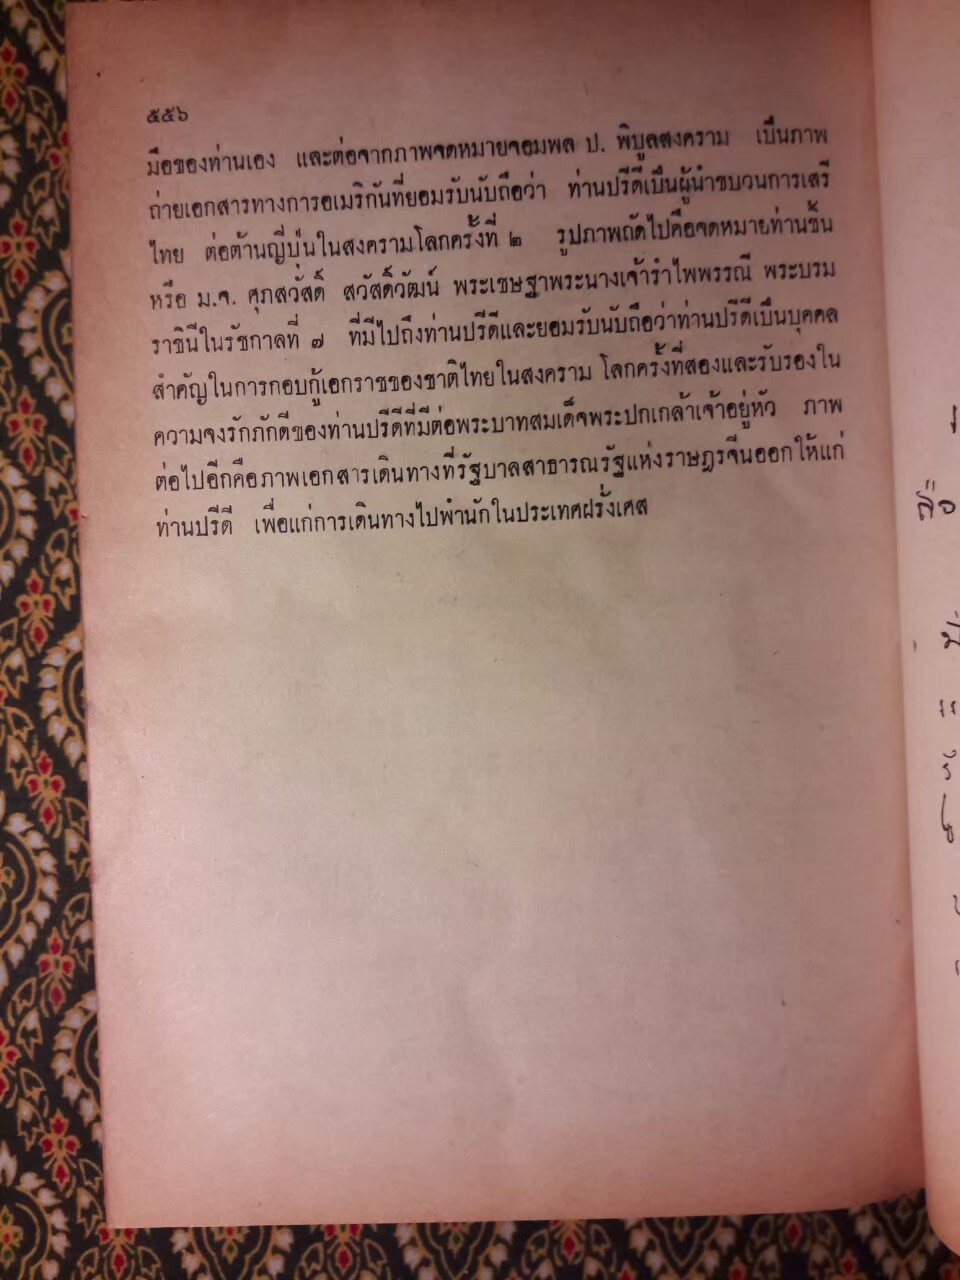 ๕๕๖
มือของท่านเอง และต่อจากภาพจดหมายจอมพล ป. พิบูลสงคราม เป็นภาพ
ถ่ายเอกสารทางการอเมริกันที่ยอมรับนับถือว่า ท่านปรีดีเป็นผู้นำขบวนการเสรี
ไทย ต่อต้านญี่ปุ่นในสงครามโลกครั้งที่ ๒ รูปภาพถัดไปคือจดหมายท่านชิ้น
หรือ ม.จ. ศุภสวัสดิ์ สวัสดิ์วัฒน์ พระเชษฐาพระนางเจ้ารำไพพรรณี พระบรม
ราชินีในรัชกาลที่ ๗ ที่มีไปถึงท่านปรีดีและยอมรับนับถือว่าท่านปรีดีเป็นบุคคล
สำคัญในการกอบกู้เอกราชของชาติไทยในสงคราม โลกครั้งที่สองและรับรองใน
ความจงรักภักดีของท่านปรีดีที่มีต่อพระบาทสมเด็จพระปกเกล้าเจ้าอยู่หัว ภาพ
ต่อไปอีกคือภาพเอกสารเดินทางที่รัฐบาลสาธารณรัฐแห่งราษฎรจีนออกให้แก่
ท่านปรีดี เพื่อแก่การเดินทางไปพำนักในประเทศฝรั่งเศส